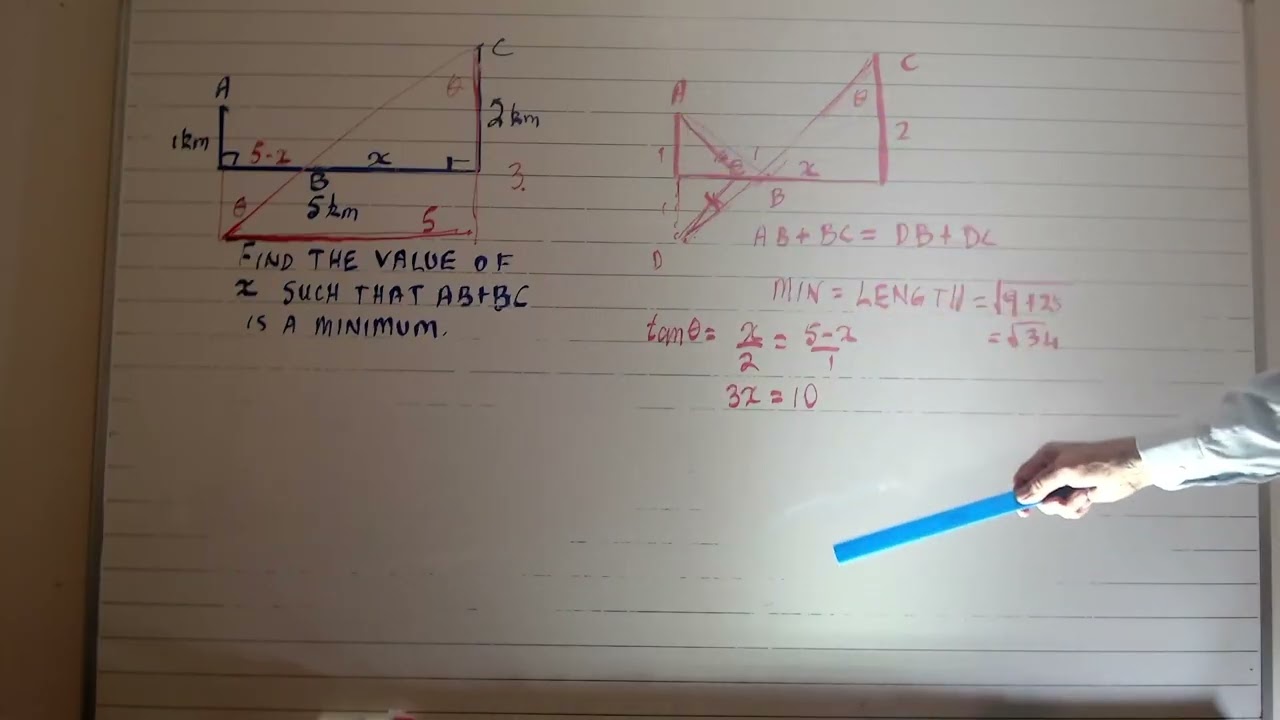 A
1km
5-x
x
B
5km
θ
5
C
θ
2km
3.
FIND THE VALUE OF
x SUCH THAT AB+BC
IS A MINIMUM.
A
1
1
θ
B
x
C
θ
2
D
AB+BC = DB+DC
MIN = LENGTH = √9+25
= √34
tanθ = x/2 = 5-x/1
3x = 10